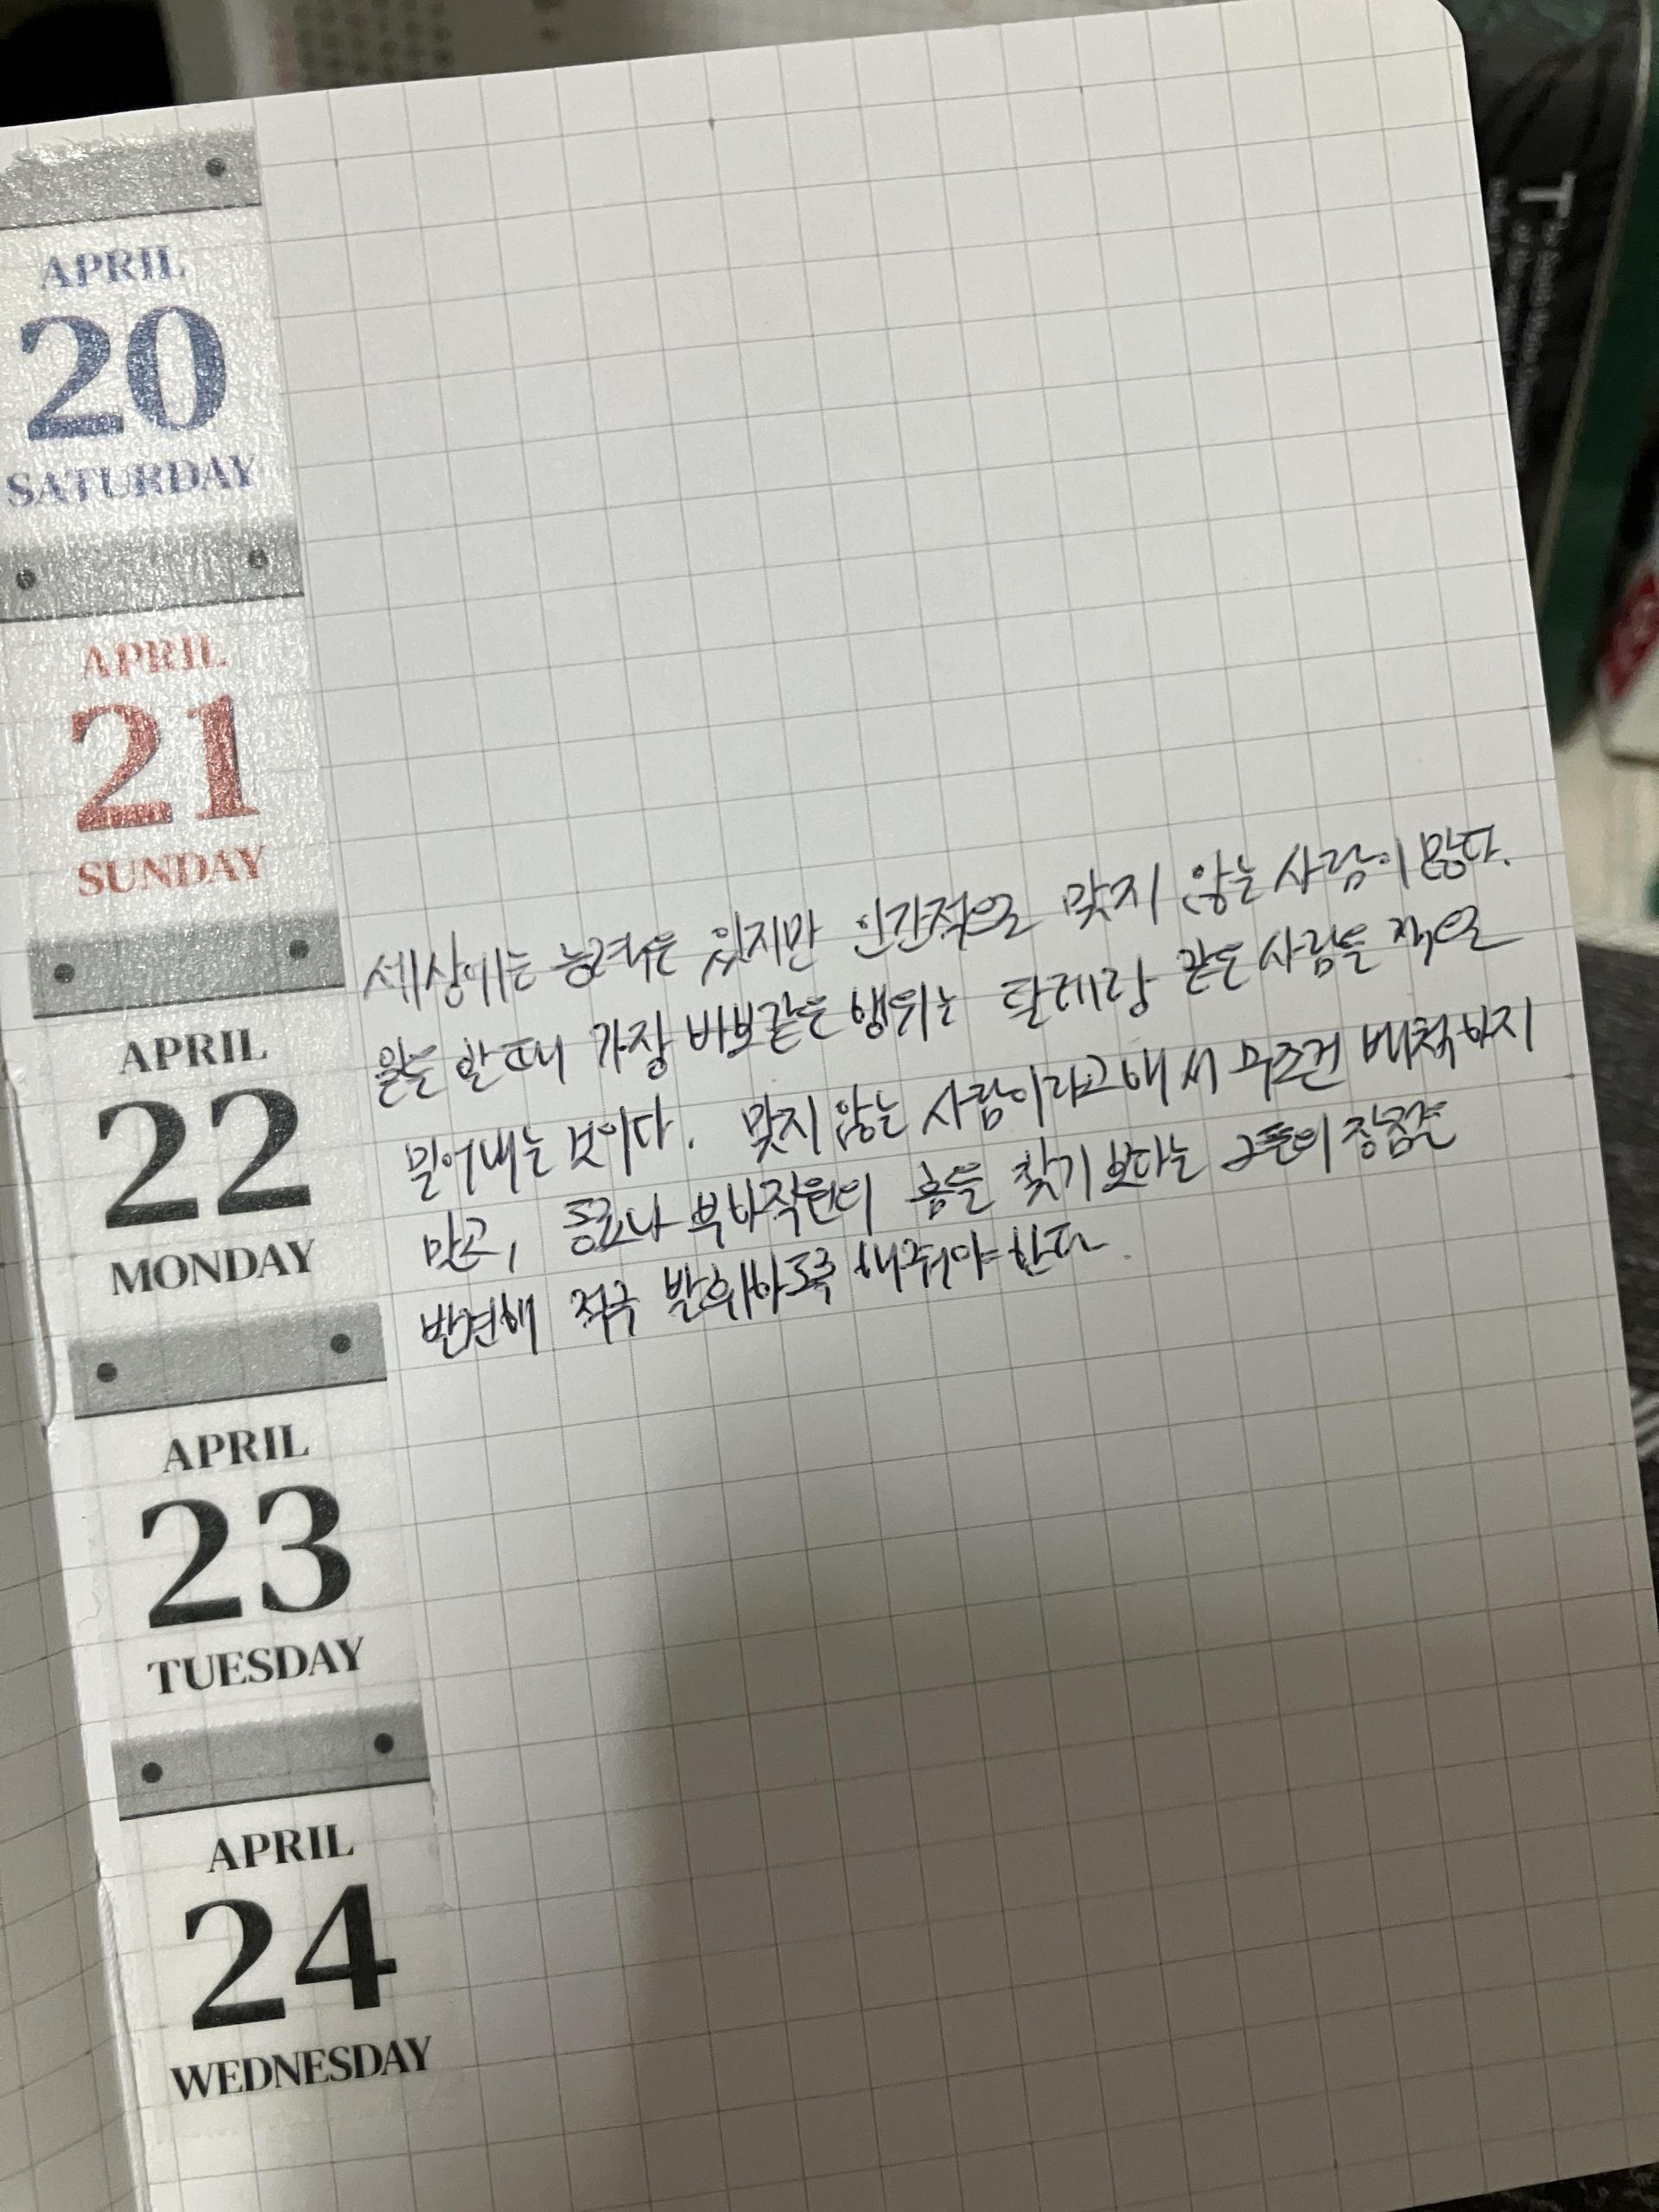 APRIL
20
SATURDAY
APRIL
21
SUNDAY
세상에는 능력은 있지만 인간적으로 맞지 않는 사람이 많다.
일을 할 때 가장 바보같은 행위는 탈레랑 같은 사람을 적으로
밀어내는 것이다. 맞지 않는 사람이라고해서 무조건 배척하지
말고, 동료나 부하직원의 흠을 찾기 보다는 그들의 장점을
발견해 적극 발휘하도록 해줘야 한다.
APRIL
22
MONDAY
APRIL
23
TUESDAY
APRIL
24
WEDNESDAY